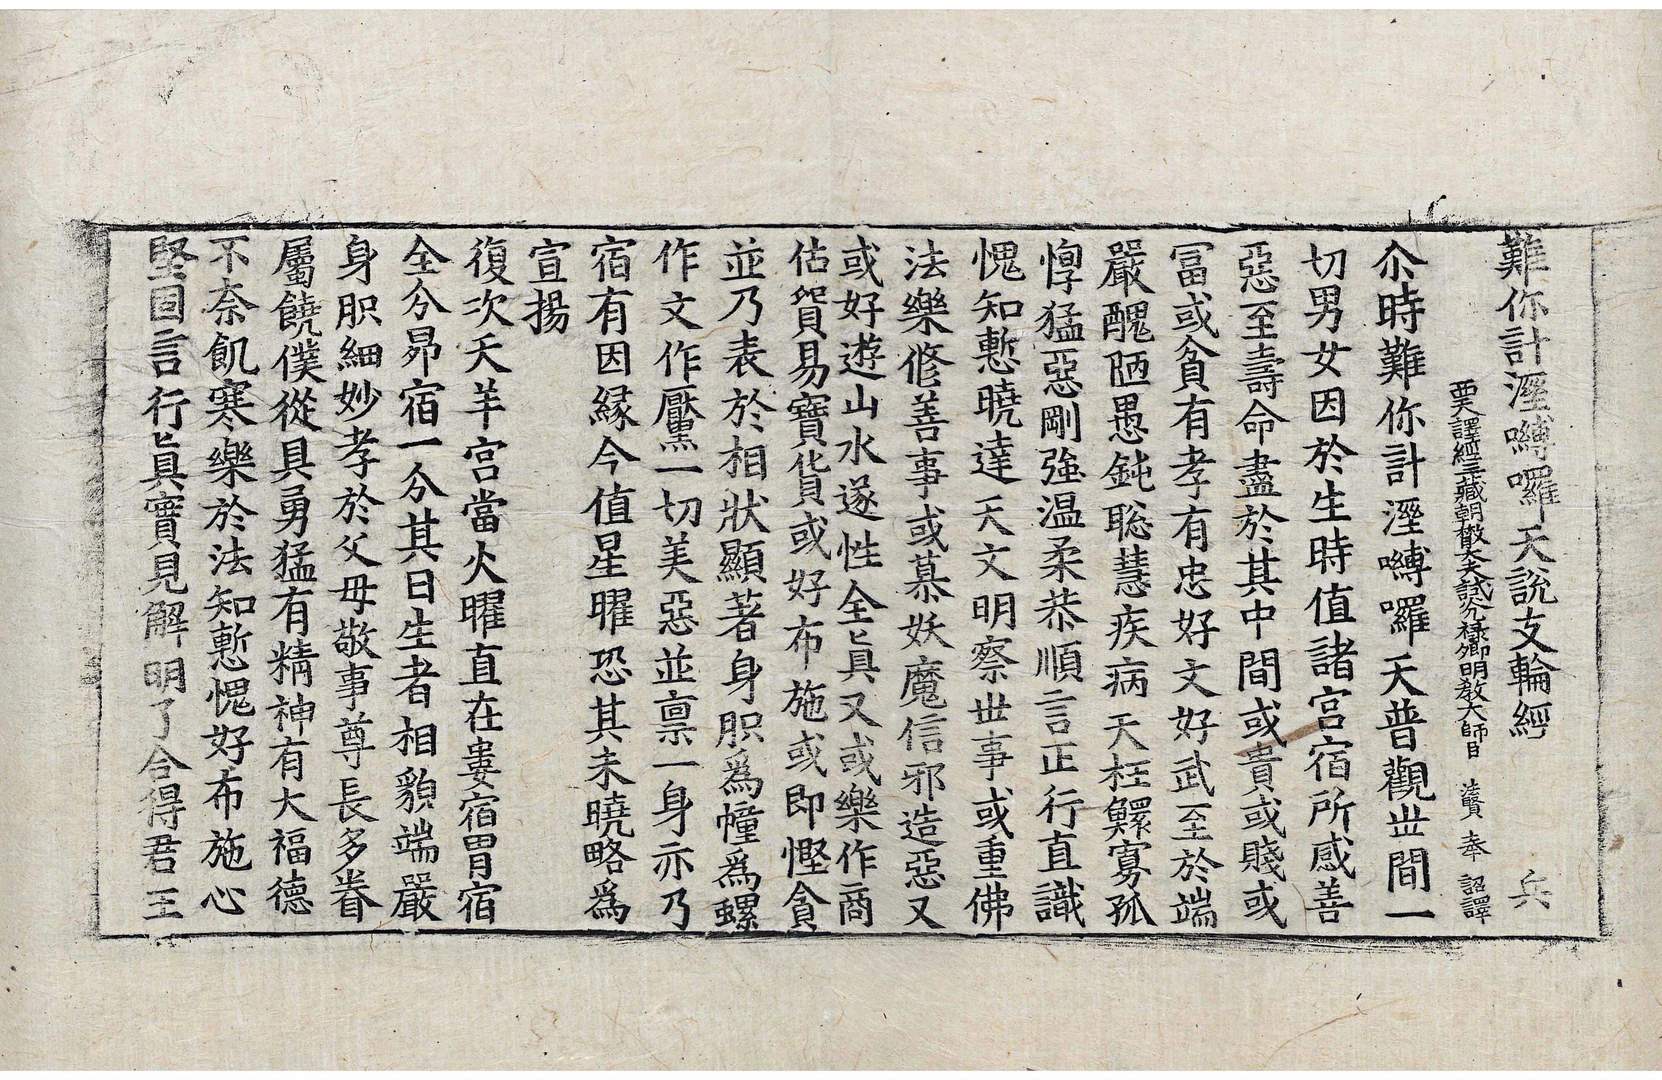 難你計溼嚩囉天說支輪經 兵
西天譯經三藏朝散大夫試光祿卿明教大師臣法賢奉 詔譯
尒時難你計溼嚩囉天普觀世間一
切男女因於生時值諸宮宿所感善
惡至壽命盡於其中間或貴或賤或
冨或貧有孝有忠好文好武至於端
嚴醜陋愚鈍聡慧疾病夭枉鰥寡孤
惸猛惡剛強温柔恭順言正行直識
愧知慙曉達天文明察世事或重佛
法樂修善事或慕妖魔信邪造惡又
或好遊山水遂性全真又或樂作商
估貿易寶貨或好布施或即慳貪
並乃表於相狀顯著身胑為幢為螺
作文作黶一切美惡並禀一身亦乃
宿有因緣今值星曜恐其未曉略為
宣揚
復次天羊宮當火曜直在婁宿胃宿
全分昴宿一分其日生者相貌端嚴
身胑細妙孝於父母敬事尊長多眷
屬饒僕從具勇猛有精神有大福德
不奈飢寒樂於法知慙愧好布施心
堅固言行真實見解明了合得君王